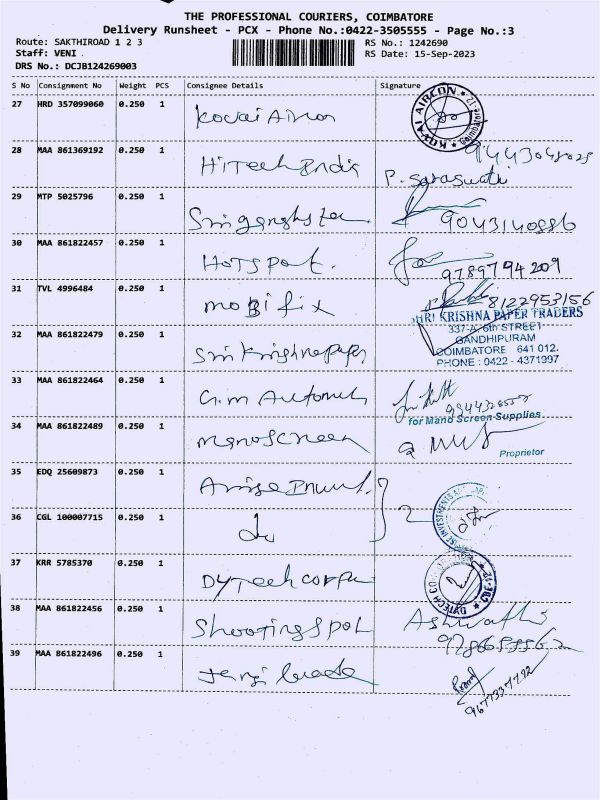 THE PROFESSIONAL COURIERS, COIMBATORE
Delivery Runsheet - PCX - Phone No.:0422-3505555 - Page No.:3
Route: SAKTHIROAD 1 2 3 RS No.: 1242690
Staff: VENI . RS Date: 15-Sep-2023
DRS No.: DCJB124269003
S No Consignment No Weight PCS Consignee Details Signature
27 HRD 357099060 0.250 1 Kovai Aircon KOVAI AIRCON Coimbatore-12
28 MAA 861369192 0.250 1 HiTech India
P. Saraswathi
29 MTP 5025796 0.250 1
9043140886
30 MAA 861822457 0.250 1 HOTSPOT.
9789794209
31 TVL 4996484 0.250 1 mobifix 8122953156
SHRI KRISHNA PAPER TRADERS
337-A, 6th STREET
GANDHIPURAM
COIMBATORE 641 012.
PHONE : 0422 - 4371997
32 MAA 861822479 0.250 1 Sri Krishna paper
33 MAA 861822464 0.250 1
for Mano Screen Supplies
34 MAA 861822489 0.250 1 manoscreen
Proprietor
35 EDQ 25609873 0.250 1
36 CGL 100007715 0.250 1 do 2
37 KRR 5785370 0.250 1 DyTech corpn
38 MAA 861822456 0.250 1 Shooting Spot Ashwathi
39 MAA 861822496 0.250 1
9677337722